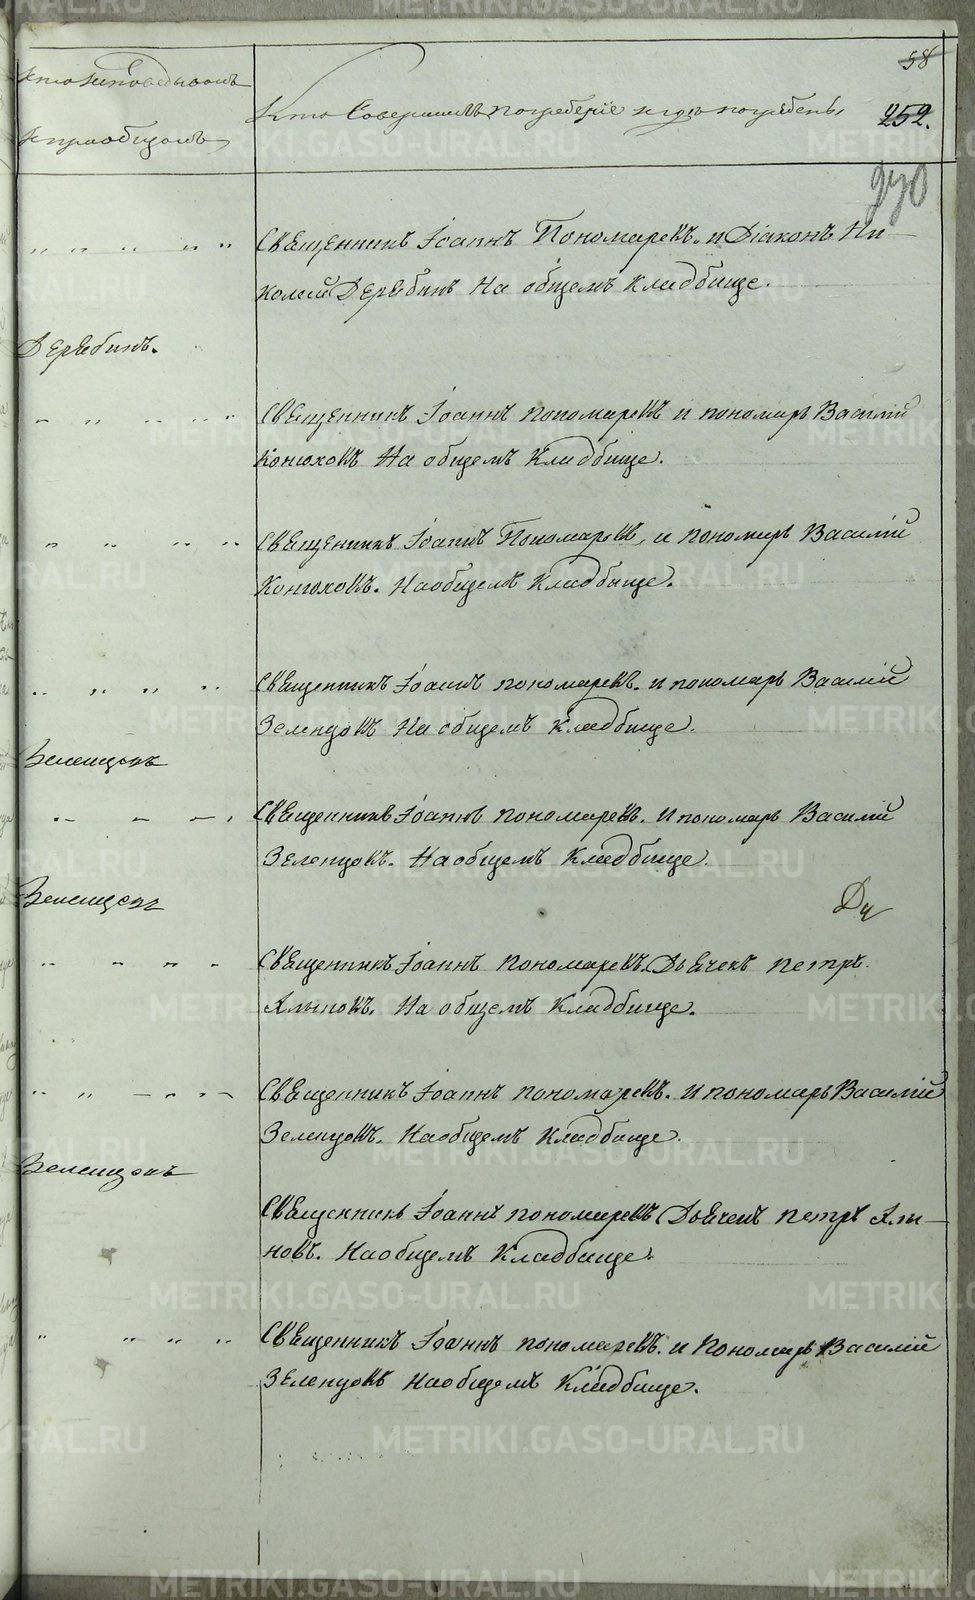 58
Кто исповѣдывалъ
и приобщалъ
Кто Совершалъ погребеніе и гдѣ погребены
252.
270
Священникъ Іоаннъ Пономаревъ. и Діаконъ Ни-
колай Дерябинъ На общемъ Кладбище.
Дерябинъ.
Священникъ Іоаннъ пономаревъ и пономарь Василій
Конюховъ На общемъ Кладбище.
Священникъ Іоаннъ Пономаревъ, и пономарь Василій
Конюховъ. На общемъ Кладбище.
Священникъ Іоаннъ пономаревъ. и пономарь Василій
Зеленцовъ На общемъ Кладбище.
Зеленцовъ
Священникъ Іоаннъ пономаревъ. И пономарь Василій
Зеленцовъ. На общемъ Кладбище.
Зеленцовъ
Дч
Священникъ Іоаннъ пономаревъ. Дьячекъ петръ
Алыновъ. На общемъ Кладбище.
Священникъ Іоаннъ пономаревъ. И пономарь Василій
Зеленцовъ. На общемъ Кладбище.
Зеленцовъ
Священникъ Іоаннъ пономаревъ Дьячекъ петръ Алы-
новъ. На общемъ Кладбище.
Священникъ Іоаннъ пономаревъ. и Пономарь Василій
Зеленцовъ На общемъ Кладбище.
METRIKI.GASO-URAL.RU